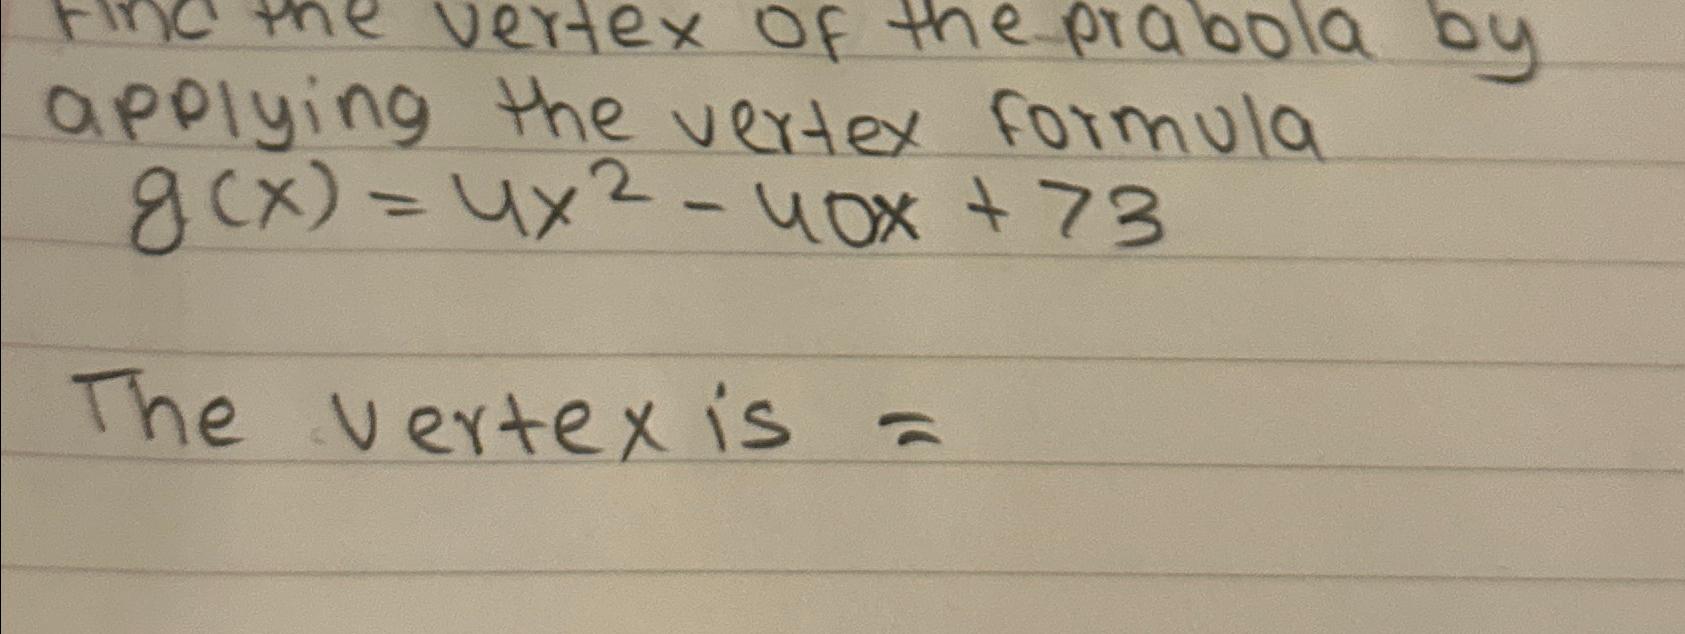 Find the vertex of the prabola by
applying the vertex formula
g(x) = 4x² - 40x + 73
The vertex is =